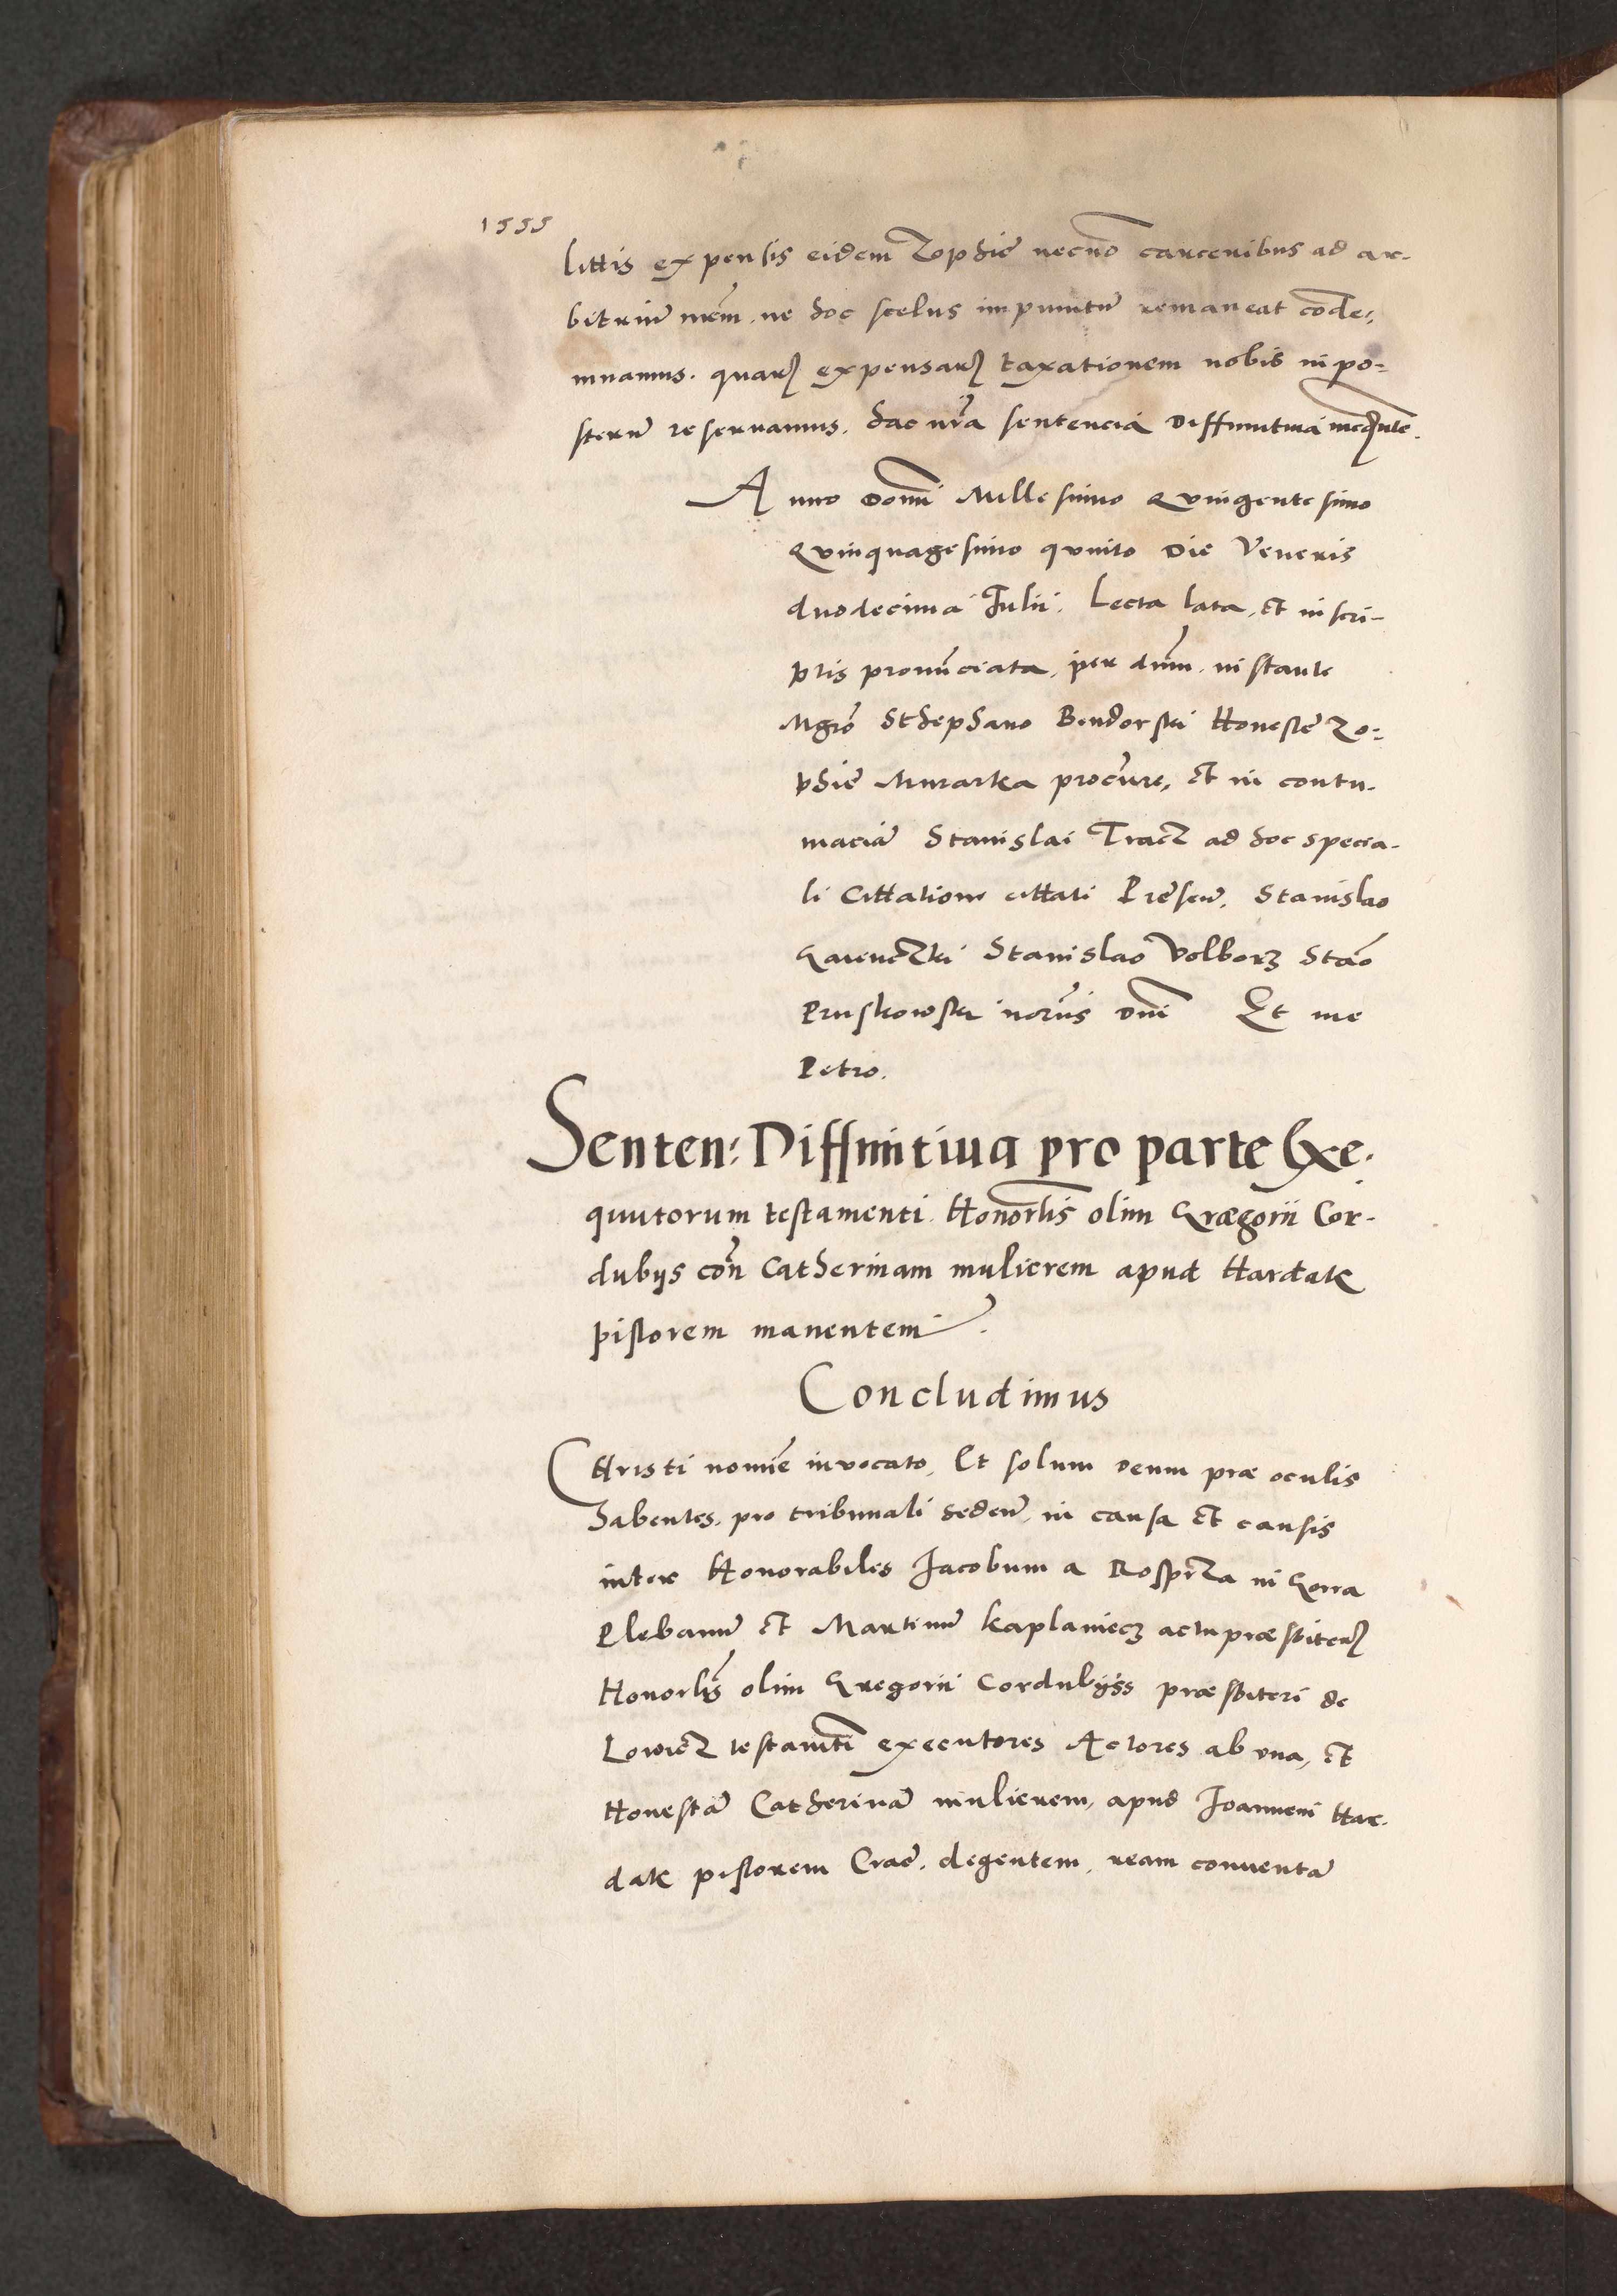 1555
littis expensis eidem Zophie necno carceribus ad ar-
bitriu nrm. ne hoc scelus impunitu remaneat conde-
mnamus. quar expensar taxationem nobis in po-
steru reservamus. hac nra sentencia Diffinitiua mediante.
Anno Domi Millesimo Quingentesimo
Quinquagesimo quinto Die Veneris
duodecima Julii. Lecta lata, et in scri-
ptis pronunciata, per dnm. instante
Mgro Sthephano Bendorski Honeste Zo-
phie Murarka procure, et in contu-
macia Stanislai Tracz ad hoc specia-
li Cittatione cittati Presen. Stanislao
Stanislao Volborz Stao
Pruskowski norijs Dni Et me
Petro.
Senten: Diffinitiua pro parte Exe-
quutorum testamenti. Honorlis olim Grægorii Cor-
dubijs con Catherinam mulierem apud Hardak
pistorem manentem.
Concludimus
CHristi nomine invocato, Et solum deum præ oculis
habentes, pro tribunali seden, in causa et causis
inter Honorabiles Jacobum a Rospcza in Gorra
Plebanu et Martinu Kaplaniecz actu præsbiter
Honorlis olim Gregorii Cordubijss præsbiteri de
Lowicz testamti executores Actores ab una, et
Honesta Catherina mulierem, apud Joannem Har-
dak pistorem Crac. degentem, ream conuenta